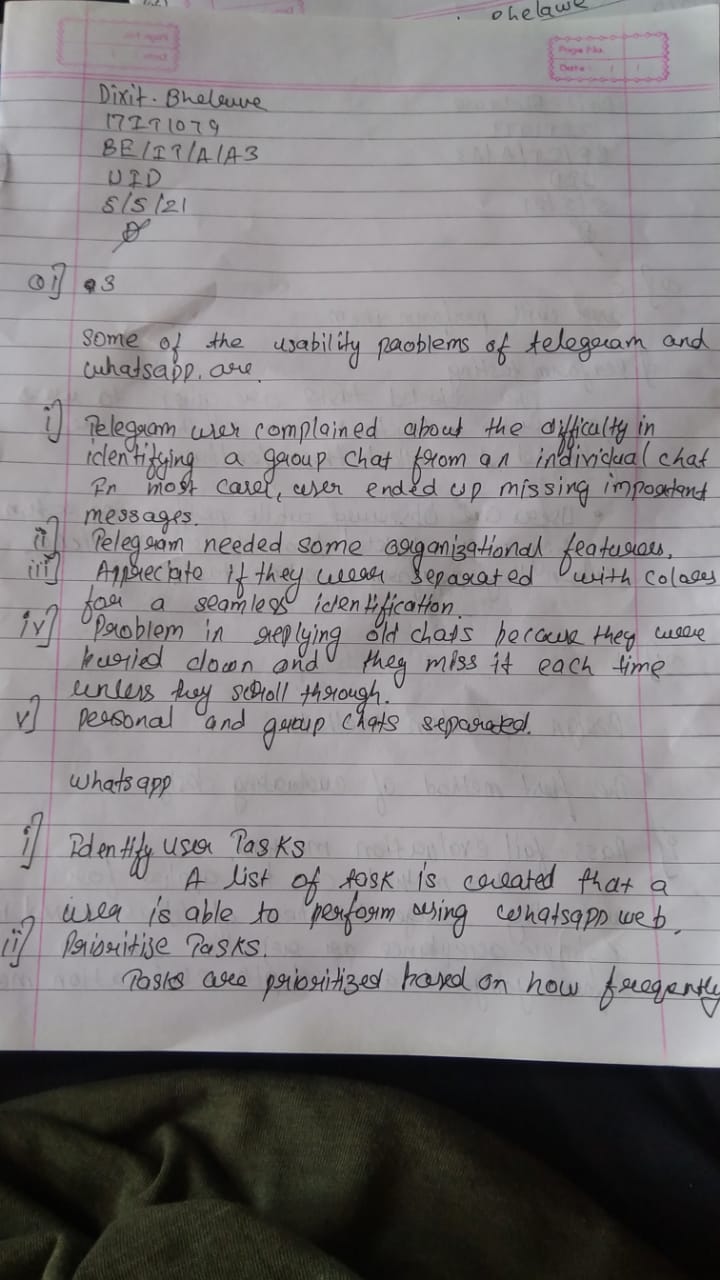 ohelawe
Page No.
Date : / /
Dixit. Bhelawe
17IT1079
BE/IT/A/A3
UID
5/5/21
Q1] Q3
some of the usability problems of telegram and
whatsapp. are
i] Telegram user complained about the difficulty in
identifying a group chat from an individual chat
In most cases, user ended up missing important
messages.
ii] Telegram needed some organizational features.
iii] Appreciate if they wear separated with colors
for a seamless identification.
iv] Problem in replying old chats because they were
buried down and they miss it each time
unless they scroll through.
v] personal and group chats separated.
whatsapp
i] Identify user Tasks
A list of task is created that a
user is able to perform using whatsapp web.
ii] Prioritise Tasks.
Tasks are prioritized based on how freqently